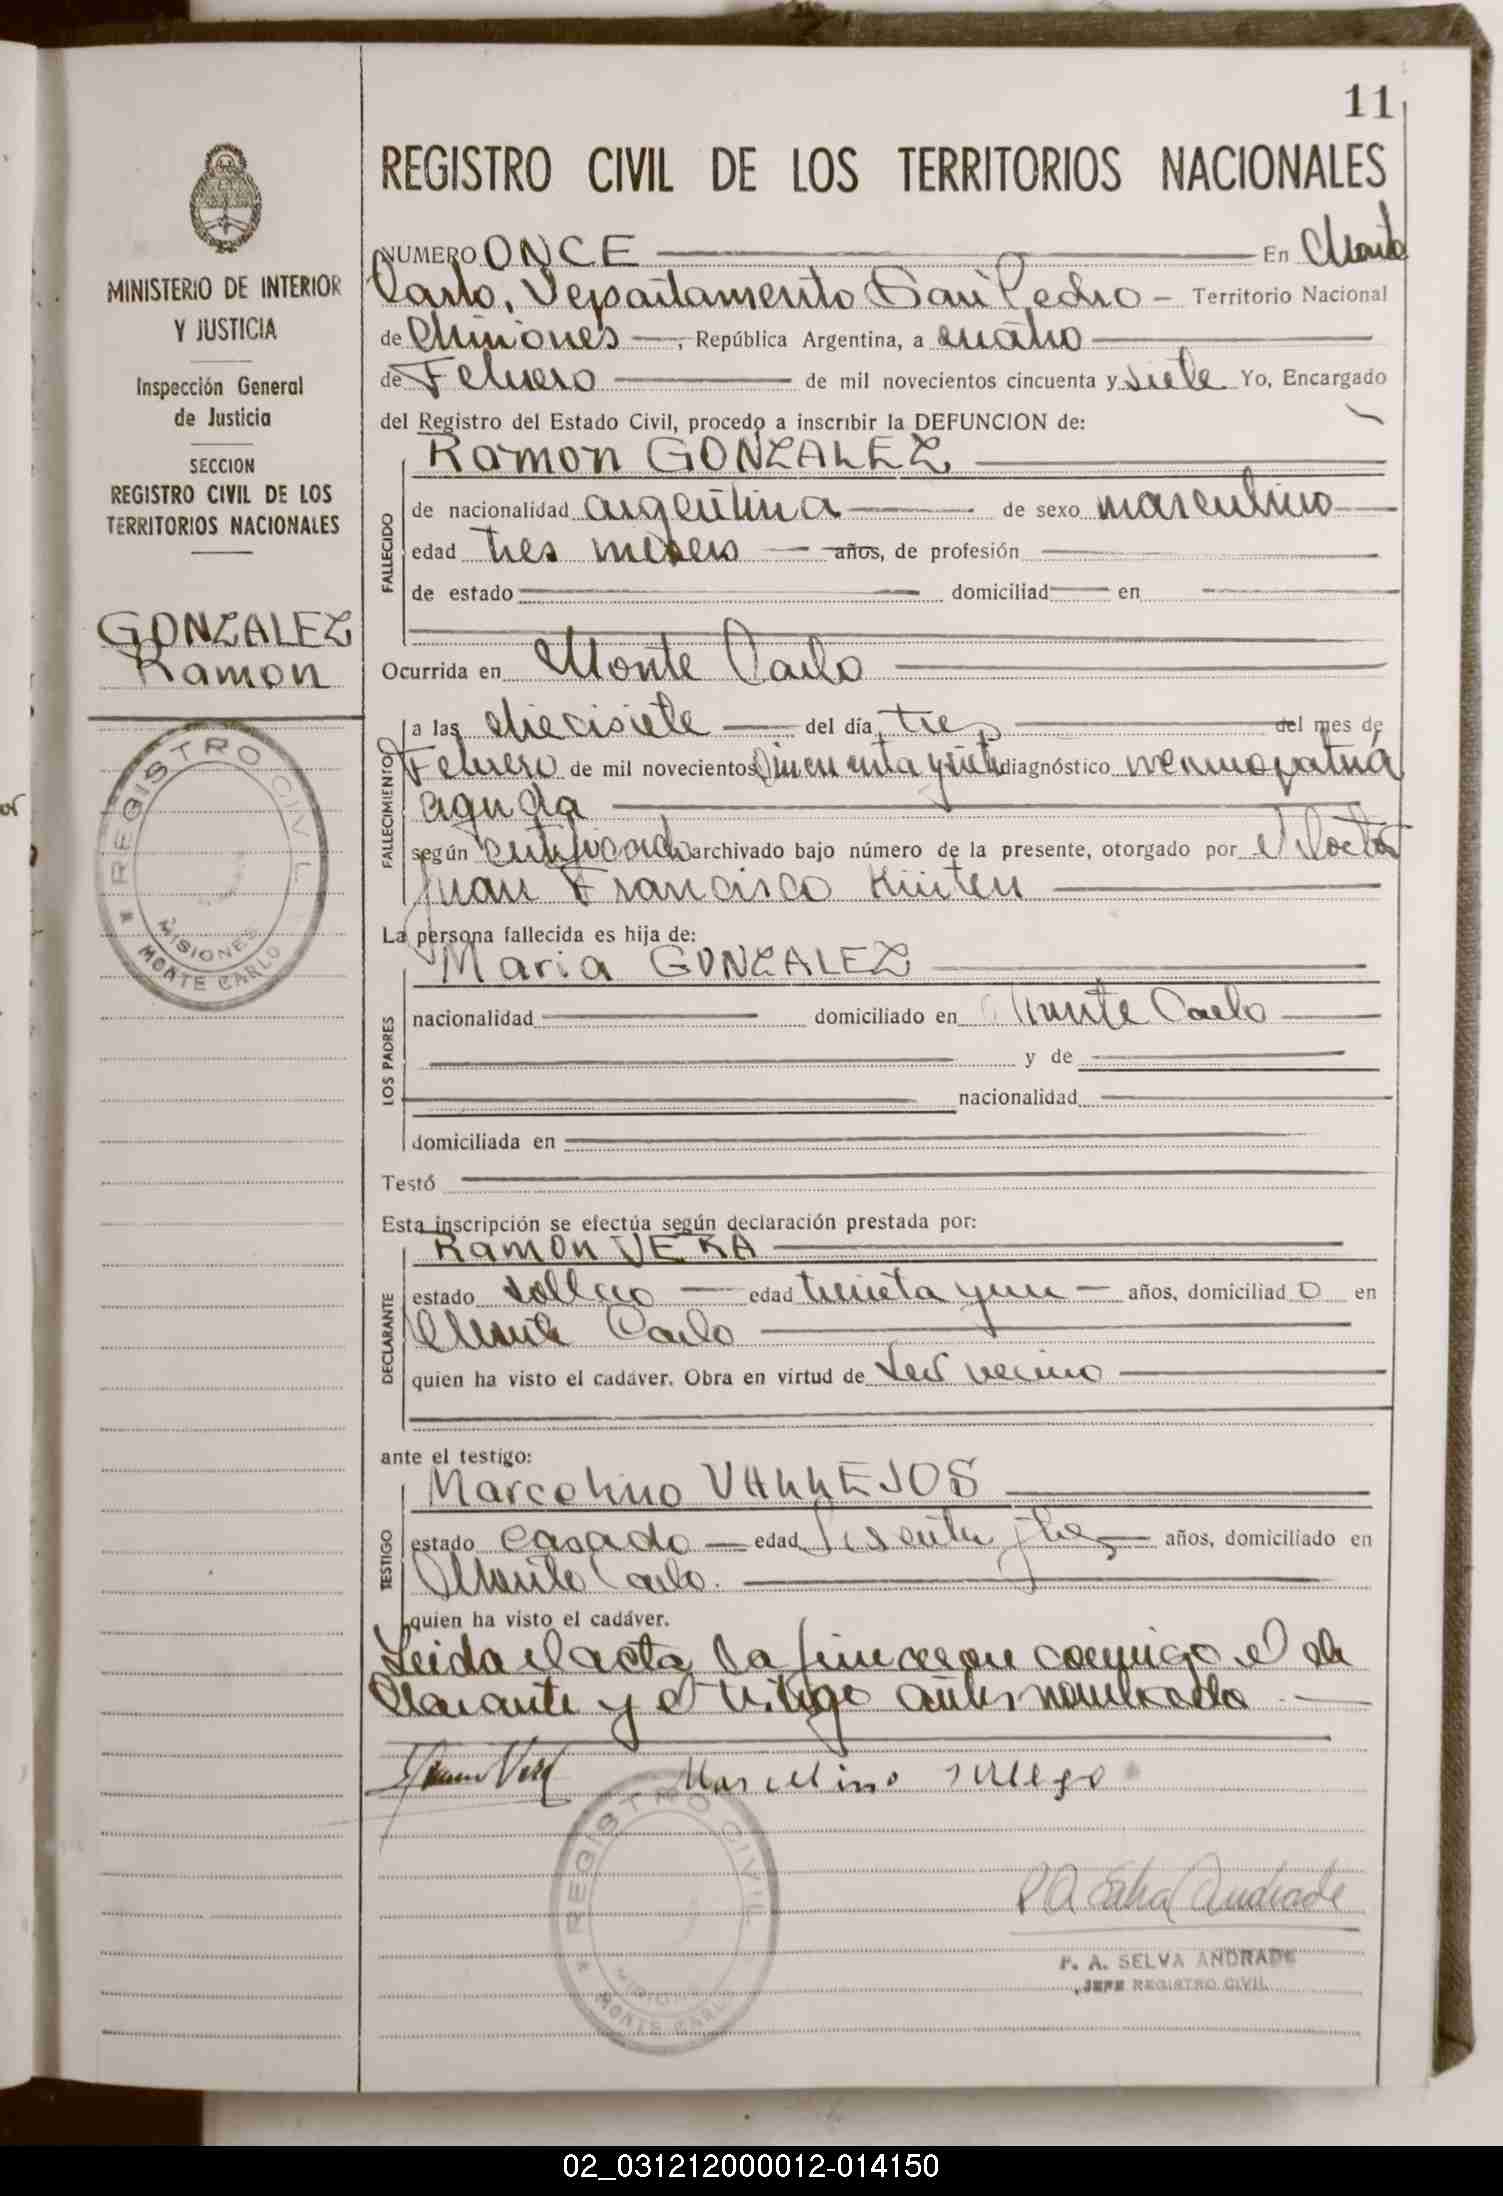 11
REGISTRO CIVIL DE LOS TERRITORIOS NACIONALES
MINISTERIO DE INTERIOR
Y JUSTICIA
Inspección General
de Justicia
SECCION
REGISTRO CIVIL DE LOS
TERRITORIOS NACIONALES
GONZALEZ
Ramon
REGISTRO CIVIL
MISIONES
MONTE CARLO
NUMERO ONCE En Monte
Carlo, Departamento San Pedro - Territorio Nacional
de Misiones, República Argentina, a cuatro
de Febrero de mil novecientos cincuenta y siete Yo, Encargado
del Registro del Estado Civil, procedo a inscribir la DEFUNCION de:
FALLECIDO
Ramon GONZALEZ
de nacionalidad argentina de sexo masculino
edad tres meses años, de profesión
de estado domiciliad en
Ocurrida en Monte Carlo
FALLECIMIENTO
a las diecisiete del día tres del mes de
Febrero de mil novecientos cincuenta y siete diagnóstico neumopatia
aguda
según certificado archivado bajo número de la presente, otorgado por el doctor
Juan Francisco
La persona fallecida es hija de:
LOS PADRES
Maria GONZALEZ
nacionalidad domiciliado en Monte Carlo
y de
nacionalidad
domiciliada en
Testó
Esta inscripción se efectúa según declaración prestada por:
DECLARANTE
Ramon VERA
estado soltero edad treinta y un años, domiciliad o en
Monte Carlo
quien ha visto el cadáver. Obra en virtud de ser vecino
ante el testigo:
TESTIGO
Marcelino VALLEJOS
estado casado edad años, domiciliado en
Monte Carlo.
quien ha visto el cadáver.
Leida el acta la firmaron conmigo el de
clarante y el testigo antes nombrado
Ramon Vera Marcelino
REGISTRO CIVIL
MISIONES
MONTE CARLO
P A Selva Andrade
P. A. SELVA ANDRADE
JEFE REGISTRO CIVIL
02_031212000012-014150